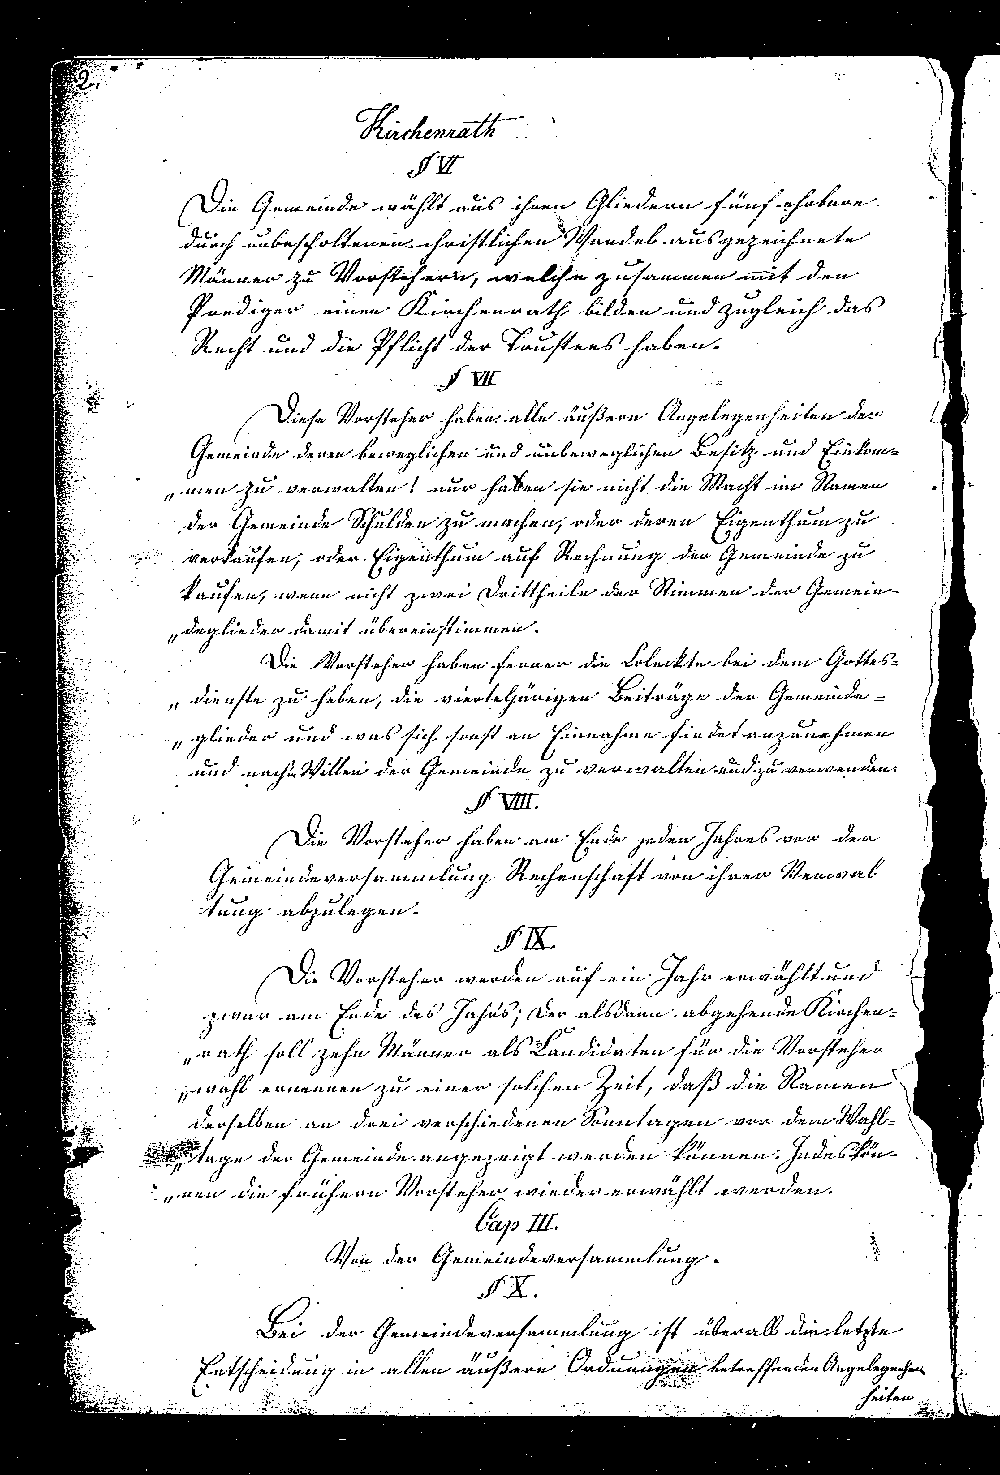 2.
Kirchenrath
§ VI
Die Gemeinde wählt aus ihren Gliedern fünf ehrbare
durch unbescholtenen christlichen Wandel ausgezeichnete
Männer zu Vorstehern, welche zusammen mit den
Prediger einen Kirchenrath bilden und zugleich das
Recht und die Pflicht der Trustees haben.
§ VII
Diese Vorsteher haben alle äußern Angelegenheiten der
Gemeinde deren beweglichen und unbeweglichen Besitz und Einkom=
„men zu verwalten! nur haben sie nicht die Macht im Namen
der Gemeinde Schulden zu machen, oder deren Eigenthum zu
verkaufen, oder Eigenthum auf Rechnung der Gemeinde zu
kaufen, wenn nicht zwei Drittheile der Stimmen der Gemein-
„deglieder damit übereinstimmen.
Die Vorsteher haben ferner die Coleckte bei dem Gottes=
„dienste zu heben, die vierteljärigen Beiträge der Gemeinde=
„glieder und was sich sonst an Einnahme findet anzunehmen
und nach Willen der Gemeinde zu verwalten und zu verwenden.
§ VIII.
Die Vorsteher haben am Ende jeden Jahres vor der
Gemeindeversammlung Rechenschaft von ihrer Verwal
tung abzulegen.
§ IX.
Die Vorsteher werden auf ein Jahr erwählt und
zwar am Ende des Jahrs; der alsdann abgehende Kirchen=
„rath soll zehn Männer als Candidaten für die Vorsteher
„wahl ernennen zu einer solchen Zeit, daß die Namen
derselben an drei verschiedenen Sonntagen vor dem Wahl=
„tage der Gemeinde angezeigt werden können. Indes kön-
„nen die frühern Vorsteher wieder erwählt werden.
Cap III.
Von der Gemeindeversammlung.
§ X.
Bei der Gemeindeversammlung ist überall die letzte
Entscheidung in allen äußern Ordnungen betreffenden Angelegenhei
heiten